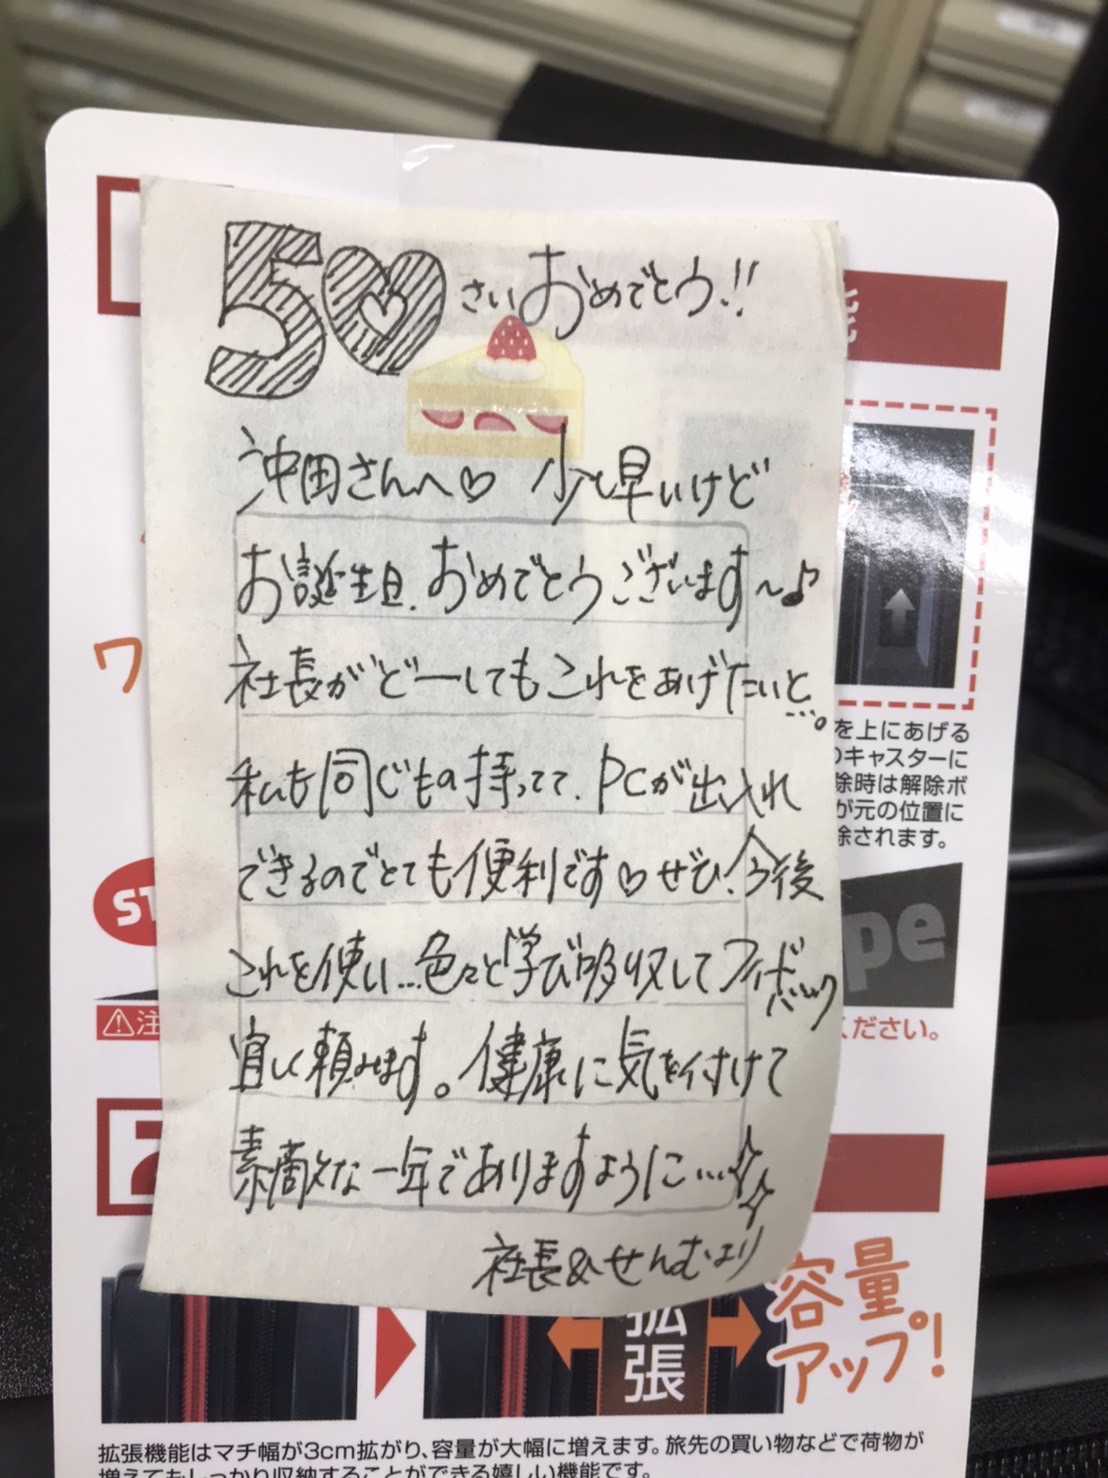 50さいおめでとう!!
沖田さんへ♡ 少し早いけど
お誕生日、おめでとうございます〜♪
社長がどーしてもこれをあげたいと…。
私も同じもの持ってて、PCが出入れ
できるのでとても便利です♡ぜひ、今後
これを使い…色々と学び吸収してフィードバック
宜しく頼みます。健康に気を付けて
素敵な一年でありますように…☆☆
社長&せんむより
能
ワ
を上にあげる
のキャスターに
除時は解除ボ
が元の位置に
除されます。
ST
pe
⚠注
ください。
2
拡張
容量
アップ!
拡張機能はマチ幅が3cm拡がり、容量が大幅に増えます。旅先の買い物などで荷物が
増えてもしっかり収納することができる嬉しい機能です。